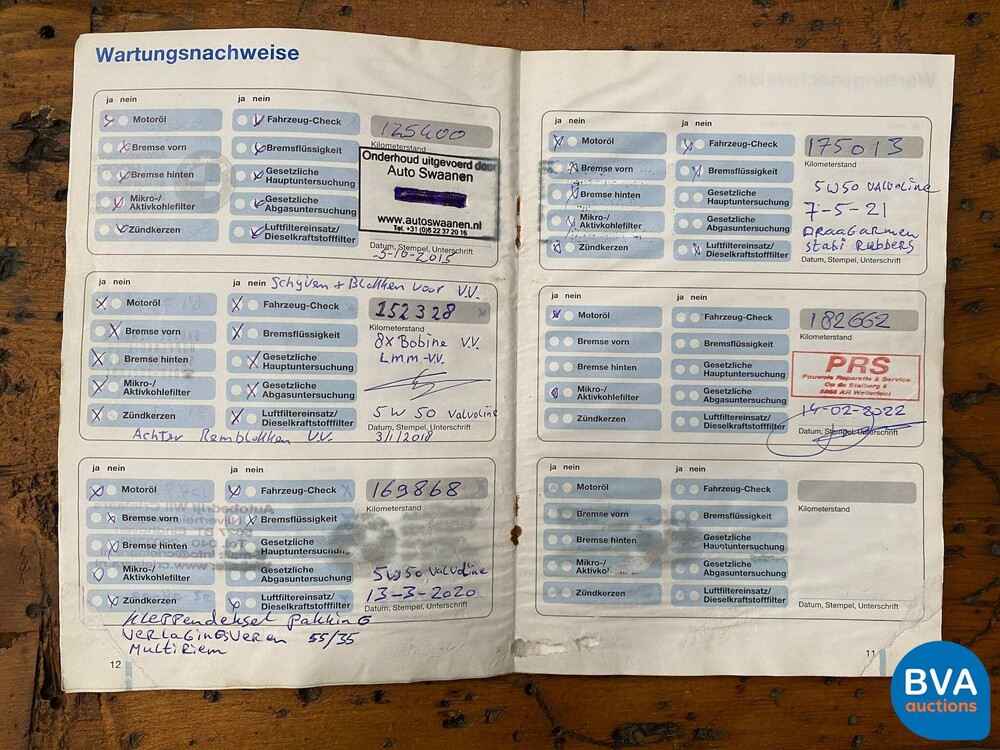 Wartungsnachweise
ja nein
ja nein
Motoröl
Fahrzeug-Check
125400
Kilometerstand
Bremse vorn
Bremsflüssigkeit
Bremse hinten
Gesetzliche
Hauptuntersuchung
Mikro-/
Aktivkohlefilter
Gesetzliche
Abgasuntersuchung
Zündkerzen
Luftfiltereinsatz/
Dieselkraftstofffilter
Onderhoud uitgevoerd door
Auto Swaanen
www.autoswaanen.nl
Tel. +31 (0)6 22 37 20 16
Datum, Stempel, Unterschrift
-5-10-2015
Schijven + Blokken voor V.V.
ja nein
ja nein
Motoröl
Fahrzeug-Check
152328
Kilometerstand
Bremse vorn
Bremsflüssigkeit
8x Bobine V.V.
Lmm-V.V.
Bremse hinten
Gesetzliche
Hauptuntersuchung
Mikro-/
Aktivkohlefilter
Gesetzliche
Abgasuntersuchung
Zündkerzen
Luftfiltereinsatz/
Dieselkraftstofffilter
5W50 Valvoline
Datum, Stempel, Unterschrift
3/1/2018
Achter Remblokken V.V.
ja nein
ja nein
Motoröl
Fahrzeug-Check
169868
Kilometerstand
Bremse vorn
Bremsflüssigkeit
Bremse hinten
Gesetzliche
Hauptuntersuchung
Mikro-/
Aktivkohlefilter
Gesetzliche
Abgasuntersuchung
Zündkerzen
Luftfiltereinsatz/
Dieselkraftstofffilter
5W50 Valvoline
13-3-2020
Datum, Stempel, Unterschrift
Kleppendeksel pakking
Verlagingsveren 55/35
Multiriem
12
ja nein
ja nein
Motoröl
Fahrzeug-Check
175013
Kilometerstand
Bremse vorn
Bremsflüssigkeit
Bremse hinten
Gesetzliche
Hauptuntersuchung
Mikro-/
Aktivkohlefilter
Gesetzliche
Abgasuntersuchung
Zündkerzen
Luftfiltereinsatz/
Dieselkraftstofffilter
5W50 Valvoline
7-5-21
Draagarmen
stabi Rubbers
Datum, Stempel, Unterschrift
ja nein
ja nein
Motoröl
Fahrzeug-Check
182662
Kilometerstand
Bremse vorn
Bremsflüssigkeit
Bremse hinten
Gesetzliche
Hauptuntersuchung
Mikro-/
Aktivkohlefilter
Gesetzliche
Abgasuntersuchung
Zündkerzen
Luftfiltereinsatz/
Dieselkraftstofffilter
PRS
Pauwels Reparatie & Service
14-02-2022
Datum, Stempel, Unterschrift
ja nein
ja nein
Motoröl
Fahrzeug-Check
Kilometerstand
Bremse vorn
Bremsflüssigkeit
Bremse hinten
Gesetzliche
Hauptuntersuchung
Mikro-/
Gesetzliche
Abgasuntersuchung
Zündkerzen
Luftfiltereinsatz/
Dieselkraftstofffilter
Datum, Stempel, Unterschrift
11
BVA
auctions